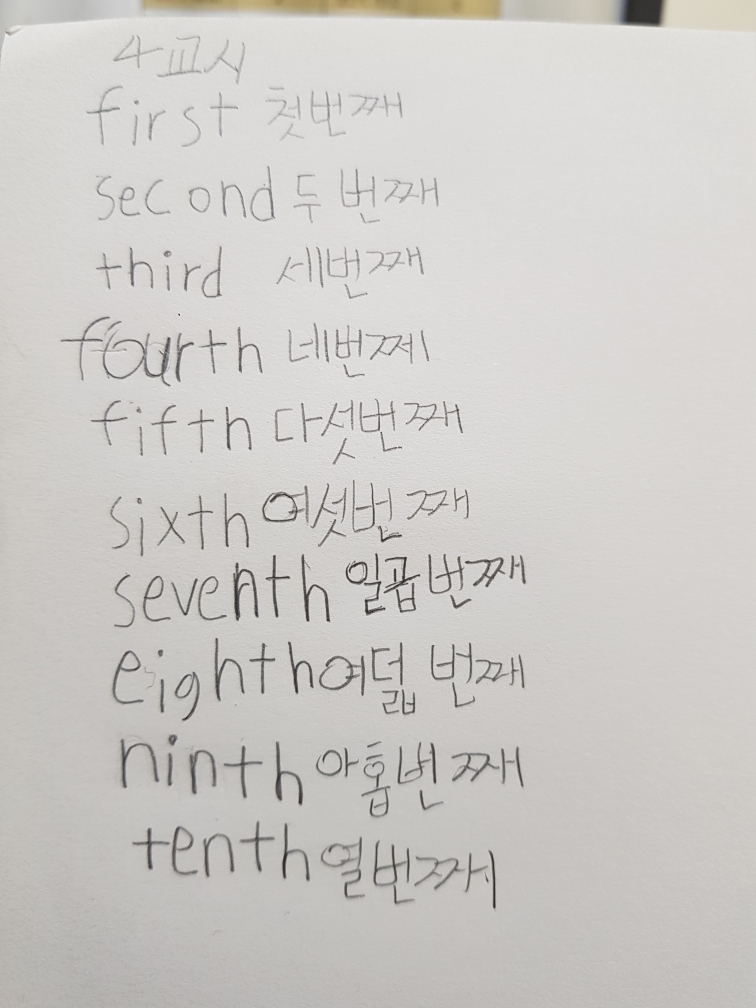 4교시
first 첫번째
second 두 번째
third 세번째
fourth 네번쩨
fifth 다섯번째
sixth 여섯번째
seventh 일곱번째
eighth 여덟 번째
ninth 아홉번째
tenth 열번째